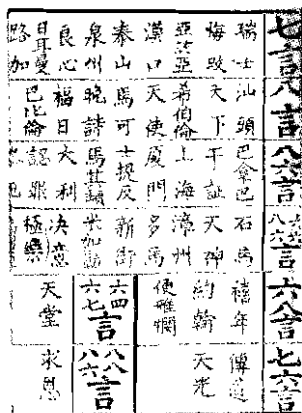 七言八言 八六言 六八言 七六言
瑞士 汕頭 巴拿巴 石馬 禧年 傳道
悔改 天下 干証 天神 約翰 天光
希伯倫 上海 漳州 便雅憫
漢口 天使 厦門 多馬
泰山 馬可 士提反 新街 六四六七言 八八八六言
泉州 晚詩 馬其頓
良心 福日 大利 決意 天堂 求恩
日耳曼 巴比倫 認罪 極樂
路加